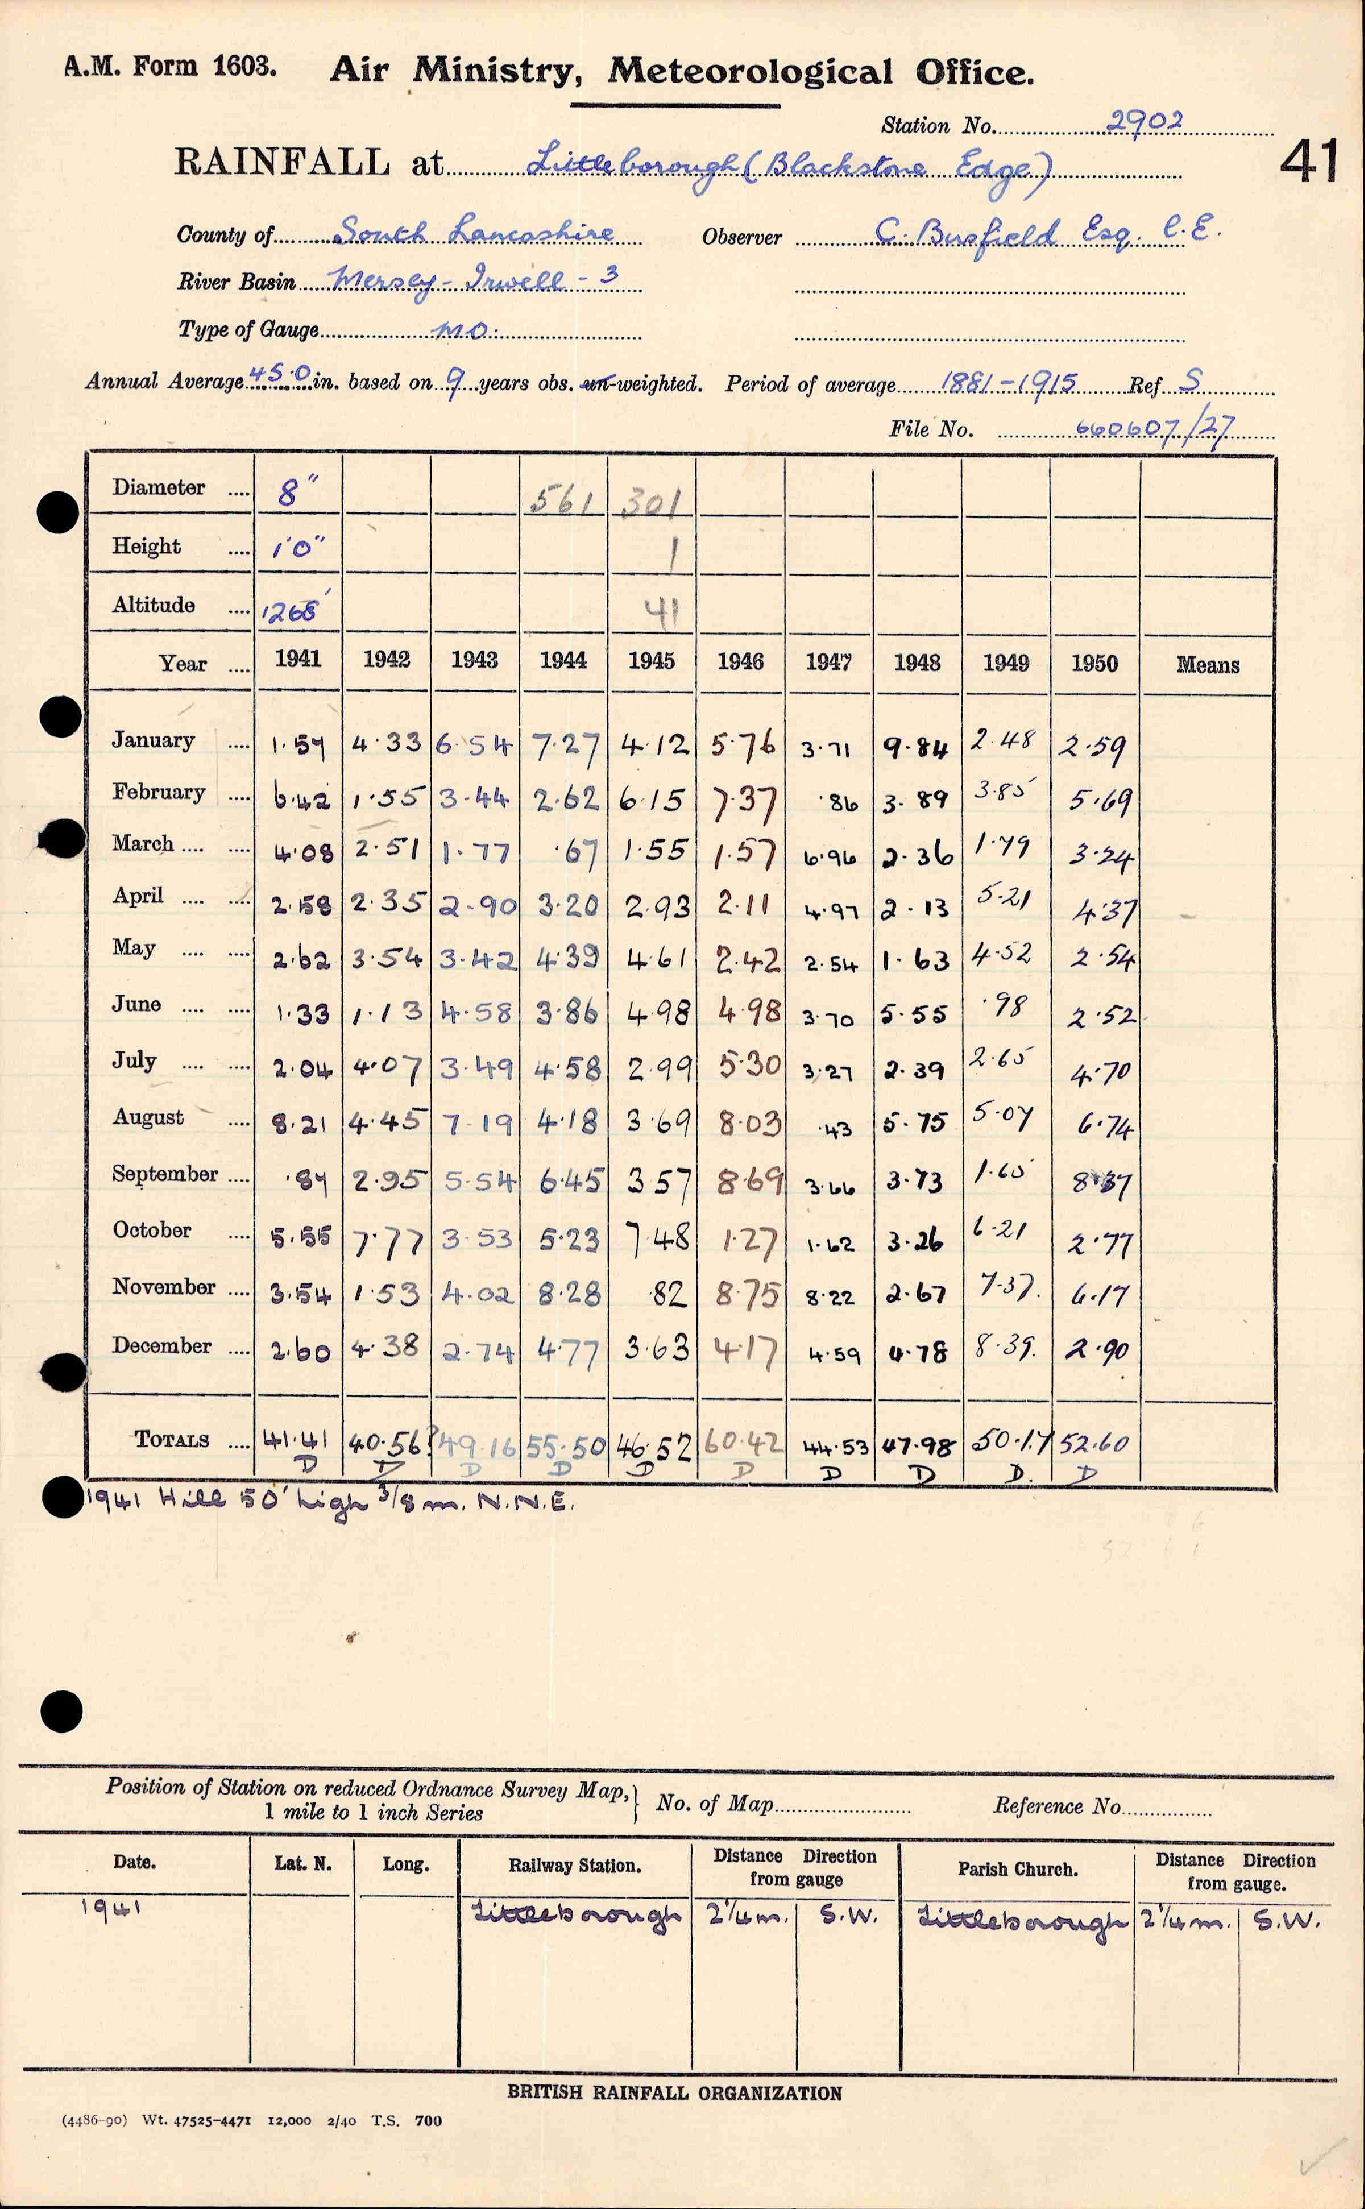 A.M. Form 1603. Air Ministry, Meteorological Office.
Station No. 2902
41
RAINFALL at Littleborough (Blackstone Edge)
County of South Lancashire Observer C. Busfield Esq. C.E.
River Basin Mersey - Irwell - 3
Type of Gauge MO.
Annual Average 45.0 in. based on 9 years obs. un-weighted. Period of average 1881-1915 Ref. S
File No. 660607/27
Diameter .... 8" 561 301
Height .... 1'0" 1
Altitude .... 1268' 41
Year .... 1941 1942 1943 1944 1945 1946 1947 1948 1949 1950 Means
January .... 1.57 4.33 6.54 7.27 4.12 5.76 3.71 9.84 2.48 2.59
February .... 6.42 1.55 3.44 2.62 6.15 7.37 .86 3.89 3.85 5.69
March .... .... 4.08 2.51 1.77 .67 1.55 1.57 6.96 2.36 1.79 3.24
April .... .... 2.58 2.35 2.90 3.20 2.93 2.11 4.97 2.13 5.21 4.37
May .... .... 2.62 3.54 3.42 4.39 4.61 2.42 2.54 1.63 4.52 2.54
June .... .... 1.33 1.13 4.58 3.86 4.98 4.98 3.70 5.55 .98 2.52
July .... .... 2.04 4.07 3.49 4.58 2.99 5.30 3.27 2.39 2.65 4.70
August .... 8.21 4.45 7.19 4.18 3.69 8.03 .43 5.75 5.07 6.74
September .... .87 2.95 5.54 6.45 3.57 8.69 3.66 3.73 1.65 8.37
October .... 5.55 7.77 3.53 5.23 7.48 1.27 1.62 3.26 6.21 2.77
November .... 3.54 1.53 4.02 8.28 .82 8.75 8.22 2.67 7.37. 6.17
December .... 2.60 4.38 2.74 4.77 3.63 4.17 4.59 4.78 8.39. 2.90
TOTALS .... 41.41 40.56? 49.16 55.50 46.52 60.42 44.53 47.98 50.17 52.60
D D D D D D D D D. D
1941 Hill 50' high 3/8 m. N.N.E.
Position of Station on reduced Ordnance Survey Map, } No. of Map Reference No.
1 mile to 1 inch Series
Date. Lat. N. Long. Railway Station. Distance Direction from gauge Parish Church. Distance Direction from gauge.
1941 Littleborough 2¼ m. S.W. Littleborough 2¼ m. S.W.
BRITISH RAINFALL ORGANIZATION
(4486-90) Wt. 47525-4471 12,000 2/40 T.S. 700